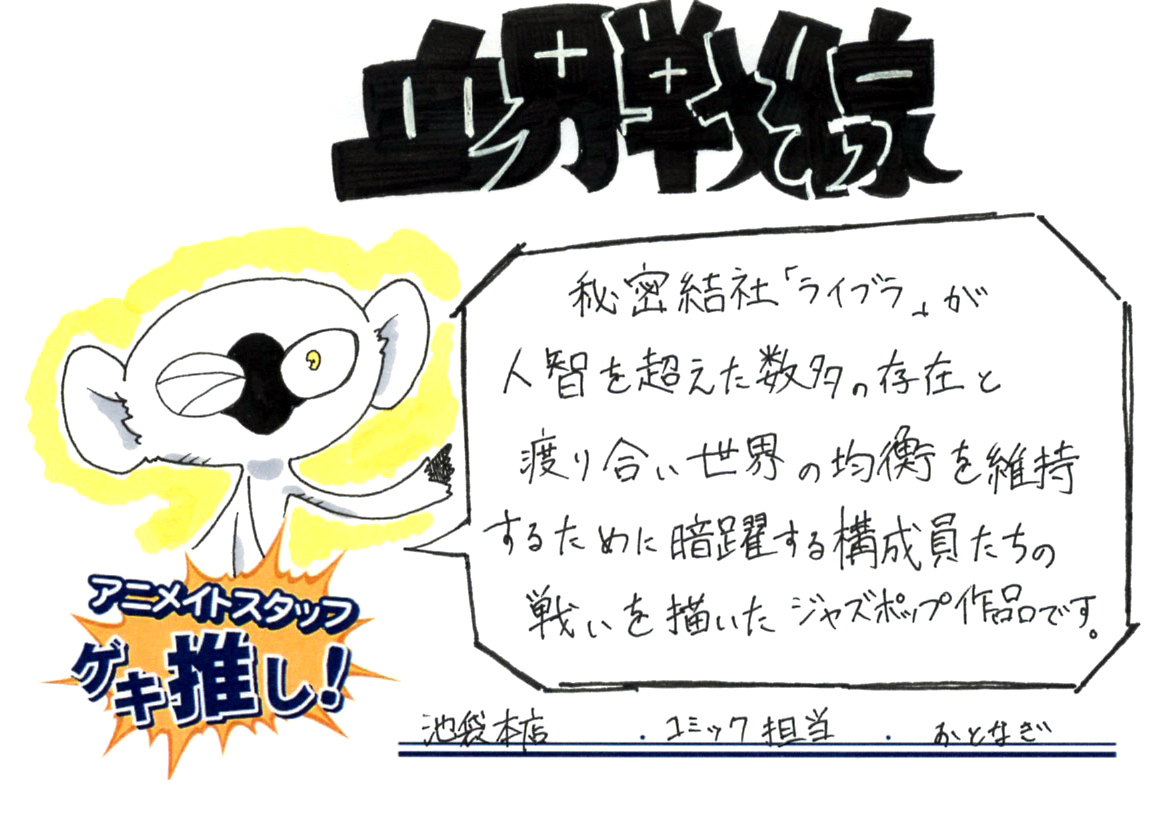 血界戦線
秘密結社「ライブラ」が
人智を超えた数多の存在と
渡り合い世界の均衡を維持
するために暗躍する構成員たちの
戦いを描いたジャズポップ作品です。
アニメイトスタッフ
ゲキ推し!
池袋本店・コミック担当・おとなぎ